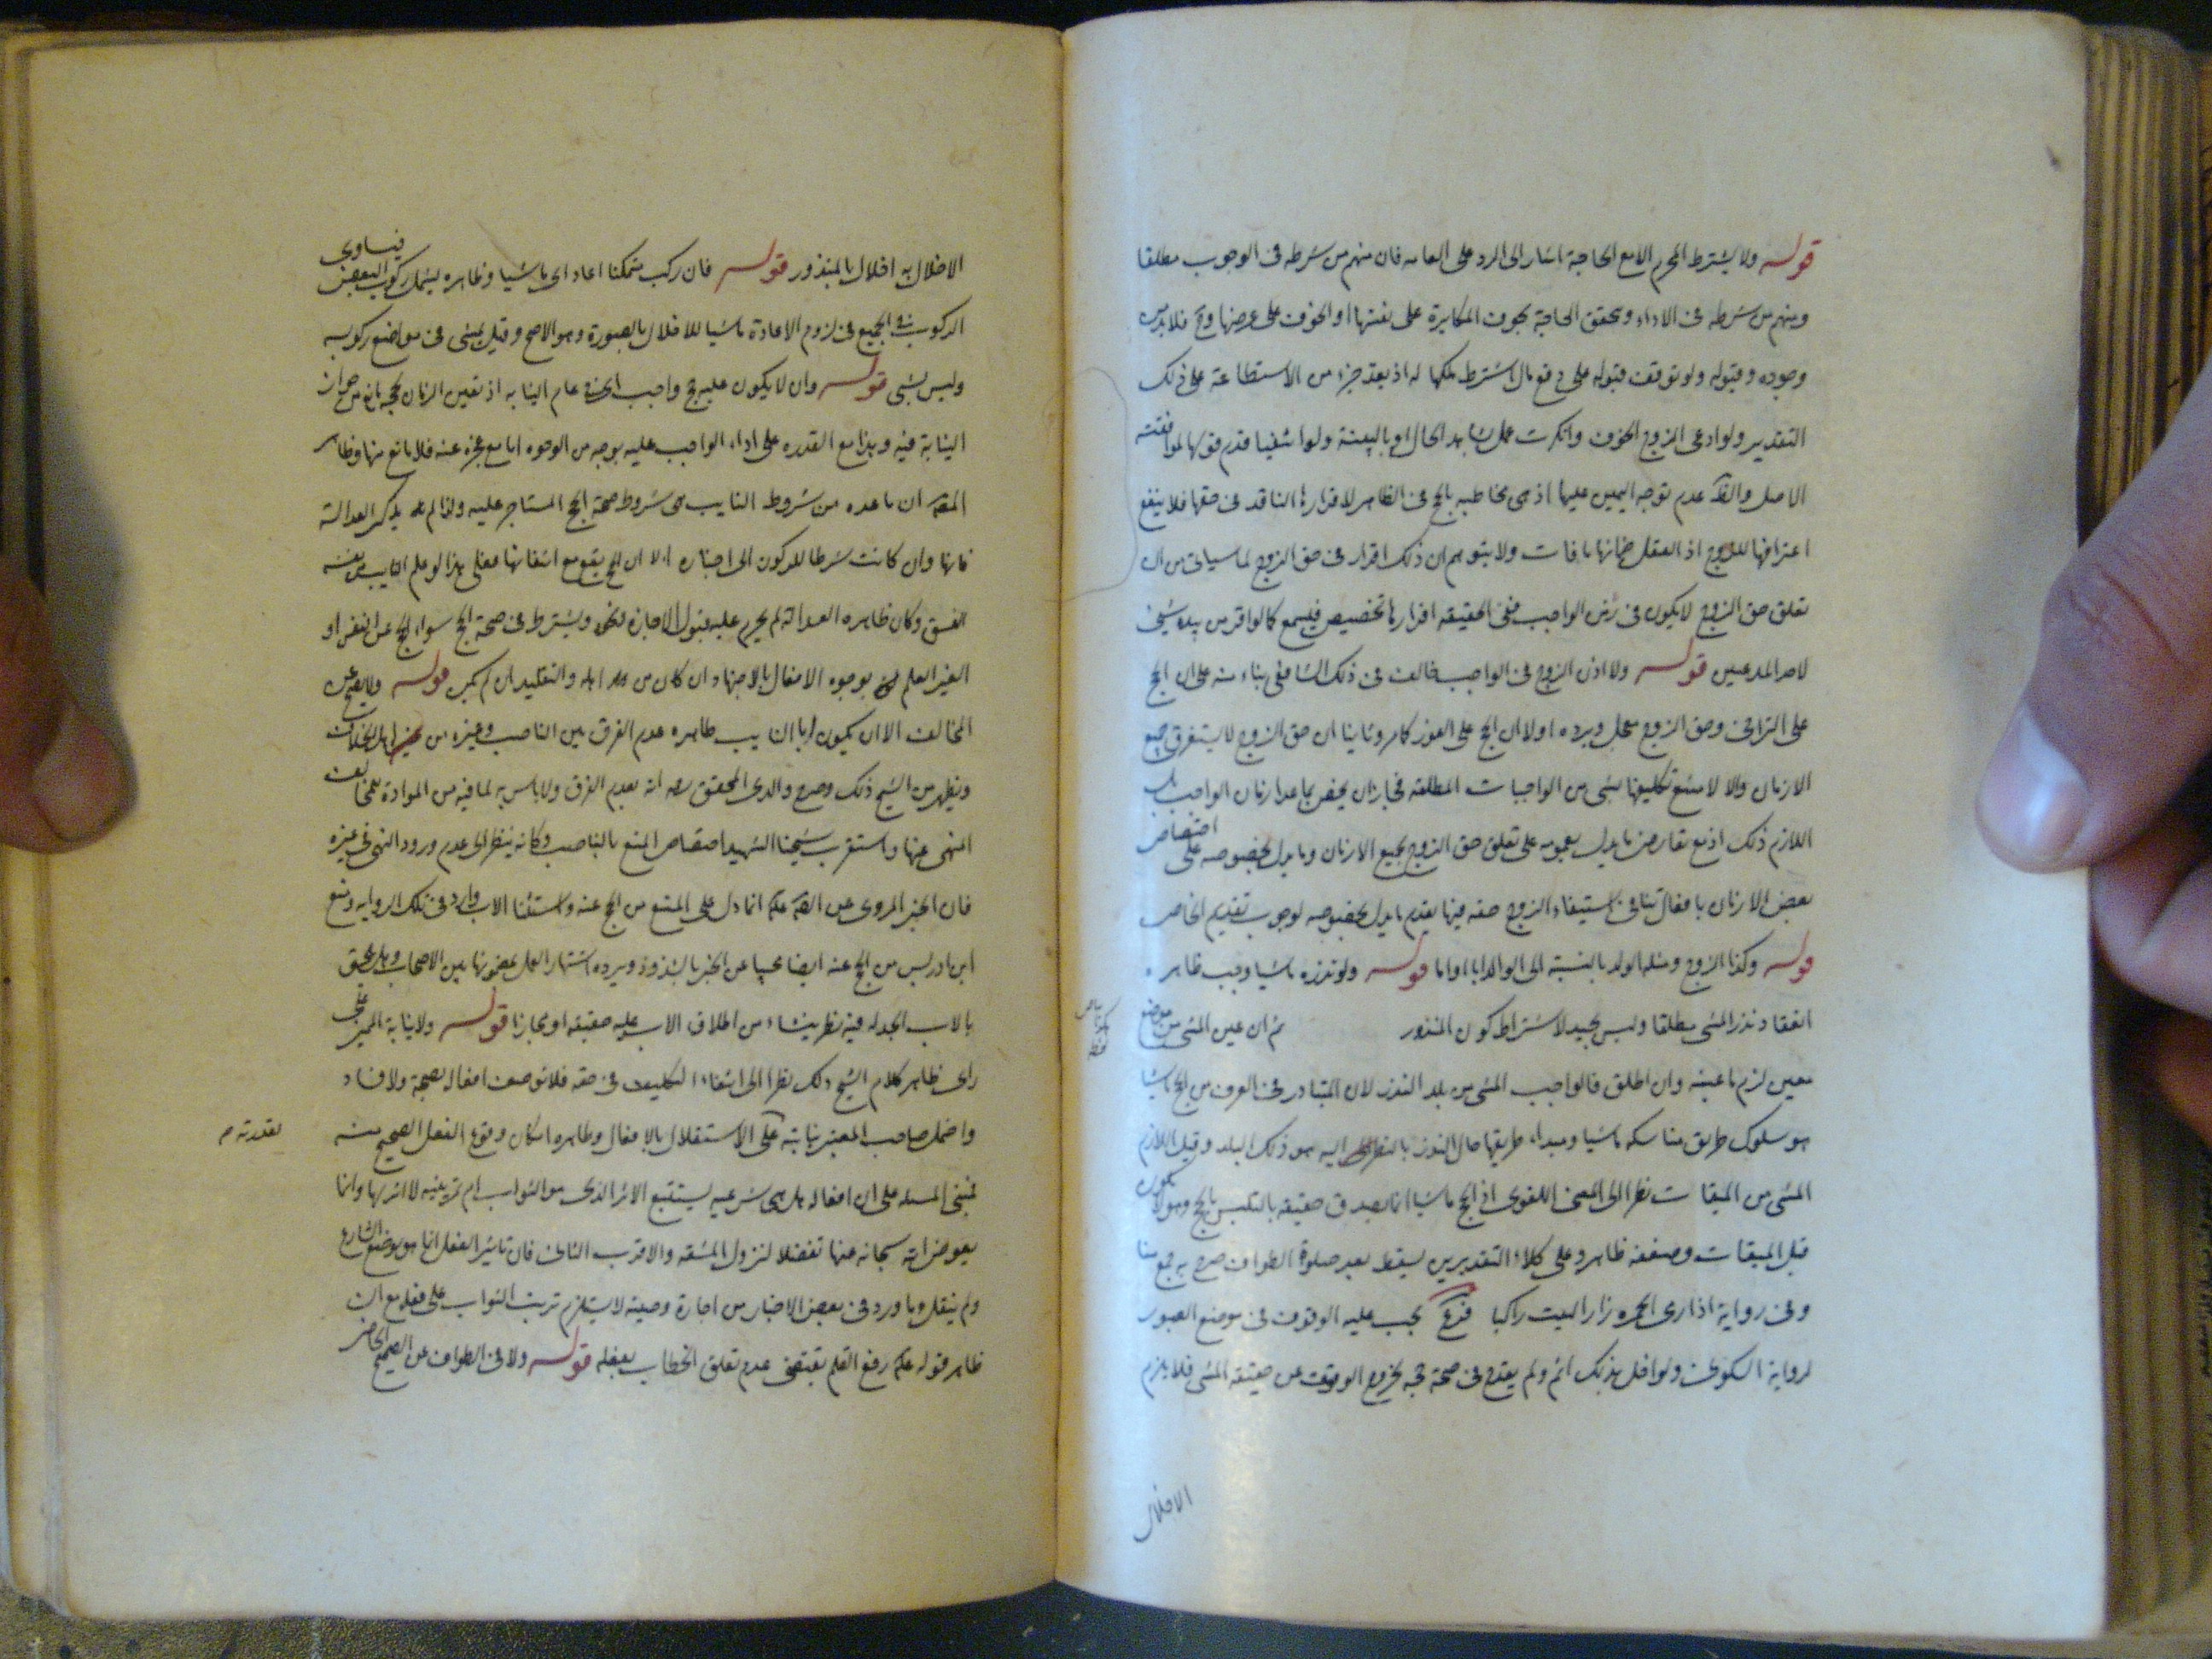 قوله ولا يشترط المحرم الا مع الحاجة اشار الى الرد على العامه فان منهم من شرطه فى الوجوب مطلقا
ومنهم من شرطه فى الاداء وتحقق الحاجة بخوف المكابرة على نفسها او الخوف على عرضها وح فلابد من
وجوده وقبوله ولو توقف قبوله على دفع مال اشترط ملكها له اذ يعد جزء من الاستطاعة على ذلك
التقدير ولو ادعى الزوج الخوف وانكرت عمل بشاهد الحال او بالبينة ولو انتفيا قدم قولها لموافقته
الاصل والظ عدم توجه اليمين عليها اذ هى مخاطبه بالحج فى الظاهر لاقرارها النافذ فى حقها فلا ينفع
اعترافها للزوج ولا يتوهم ان ذلك اقرار فى حق الزوج لما سياتى من ان
تعلق حق الزوج لا يكون فى زمن الواجب ففى الحقيقه اقرارها تخصيص فيسمع كما لو اقر من بيده شيئ
لاحد المدعيين قوله ولا اذن الزوج فى الواجب خالف فى ذلك الشافعى بناء منه على ان الحج
على التراخى وحق الزوج معجل ويرده اولا ان الحج على الفور كما مر وثانيا ان حق الزوج لا يستغرق جميع
الازمان والا لامتنع تكليفها بشئ من الواجبات المطلقه فجاز ان يختص بما عدا زمان الواجب بل
اللازم ذلك اذ مع تعارض ما يدل بعمومه على تعلق حق الزوج بجميع الازمان وما يدل بخصوصه على اختصاص
بعض الازمان بافعال تنافى استيفاء الزوج حقه فيها يقدم ما يدل بخصوصه لوجوب تقديم الخاص
قوله وكذا الزوج ومثله الولد بالنسبة الى الوالد ابا او اما قوله ولو نذره ماشيا وجب ظاهره
انعقاد نذر المشى مطلقا وليس بجيد لاشتراط كون المنذور ثم ان عين المشى من موضع
معين لزم ما عينه وان اطلق فالواجب المشى من بلد النذر لان المتبادر فى العرف من الحج ماشيا
هو سلوك طريق مناسكه ماشيا ومبداء طريقها حال النذر بالنظر اليه هو ذلك البلد وقيل اللازم
المشى من الميقات نظرا الى المعنى اللغوى اذ الحج ماشيا انما يصدق حقيقه بالتلبس بالحج وهو لا يكون
قبل الميقات وضعفه ظاهر وعلى كلا التقديرين يسقط بعد صلوة الطواف صرح به جمع منا
وفى رواية اذا رمى الجمره زار البيت راكبا فرع يجب عليه الوقوف فى موضع العبور
لرواية السكونى ولو اخل بذلك اثم ولم يقدح فى صحة حجه لخروج الوقوف عن حقيقه المشى فلا يلزم
الاخلال
الاخلال به اخلال بالمنذور قوله فان ركب متمكنا اعاد اى ماشيا وظاهره يشمل ركوب البعض فيساوى
الركوب فى الجميع فى لزوم الاعادة ماشيا للاخلال بالصورة وهو الاصح وقيل يمشى فى مواضع ركوبه
وليس بشئ قوله وان لا يكون عليه حج واجب اى فى عام النيابه اذ تعين الزمان لحجه مانع من جواز
النيابة فيه وهذا مع القدره على اداء الواجب عليه بوجه من الوجوه اما مع عجزه عنه فلا مانع منها وظاهر
المص ان ما عده من شروط النايب هى شروط صحة الحج المستاجر عليه ولذا لم يذكر العدالة
فانها وان كانت شرطا للركون الى اخباره الا ان الحج يقع مع انتفائها فعلى هذا لو علم النايب من نفسه
الفسق وكان ظاهره العدالة لم يحرم عليه قبول الاجارة ويشترط فى صحة الحج سواء الحج عن النفس او
الغير العلم بوجوه الافعال بالاجتهاد ان كان من اهله والتقليد ان لم يكن قوله ولا يصح عن
المخالف الا ان يكون ابا النايب ظاهره عدم الفرق بين الناصب وغيره من اهل الخلاف
ويظهر من الشيخ ذلك وصرح والدى المحقق بعدم الفرق ولا باس به لما فيه من الموادة للمخالف
المنهى عنها واستقرب شيخنا الشهيد اختصاص المنع بالناصب وكانه ينظر الى عدم ورود النهى فى غيره
فان الخبر المروى عن انما دل على المنع من الحج عنه واستثنا الاب وارد فى تلك الروايه ومنع
ابن ادريس من الحج عنه ايضا مجيبا عن الخبر بالشذوذ ويرده اشتهار العمل بمضمونها بين الاصحاب وهل يلحق
بالاب الجد له فيه نظر ينشاء من اطلاق الاب عليه حقيقه او مجازا قوله ولا نيابة المميز على
راى ظاهر كلام الشيخ ذلك نظرا الى انتفاء التكليف فى حقه فلا توصف افعاله بصحة ولا فساد
واحتمل صاحب المعتبر نيابته لقدرته على الاستقلال بالافعال وظاهره امكان وقوع الفعل الصحيح منه
فمبنى المسئله على ان افعاله هل هى شرعيه يستتبع الاثر الذى هو الثواب ام تمرينيه لا اثر لها وانما
يعوض الله سبحانه عنها تفضلا لنزول المشقه والاقرب الثانى فان تاثير الفعل انما هو بوضع الشارع
ولم ينقل وما ورد فى بعض الاخبار من اجازة وصيته لا يستلزم ترتب الثواب على فعله مع ان
ظاهر قوله رفع القلم يقتضى عدم تعلق الخطاب بفعله قوله ولا فى الطواف عن الصحيح الحاضر